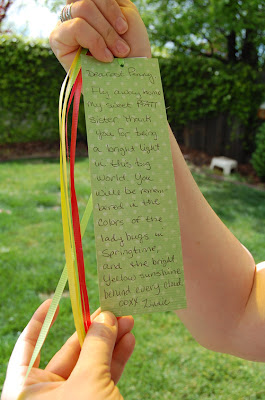 Dearest Penny
Fly away home
My sweet
sister thank
you for being
a bright light
in this big
world. You
will be remem
bered in the
colors of the
ladybugs in
Springtime,
and the bright
Yellow sunshine
behind every cloud.
OOXX